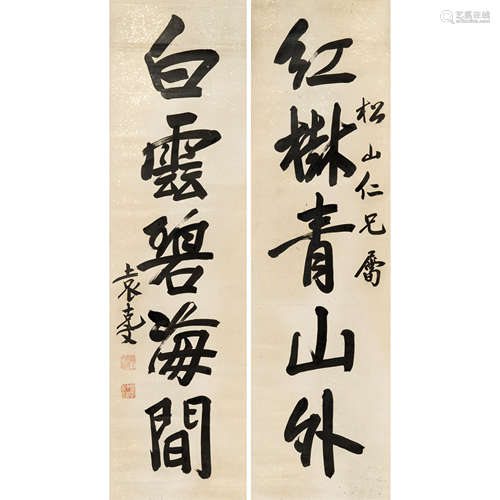 艺狐在线
紅樹青山外
松山仁兄屬
白雲碧海間
袁克文